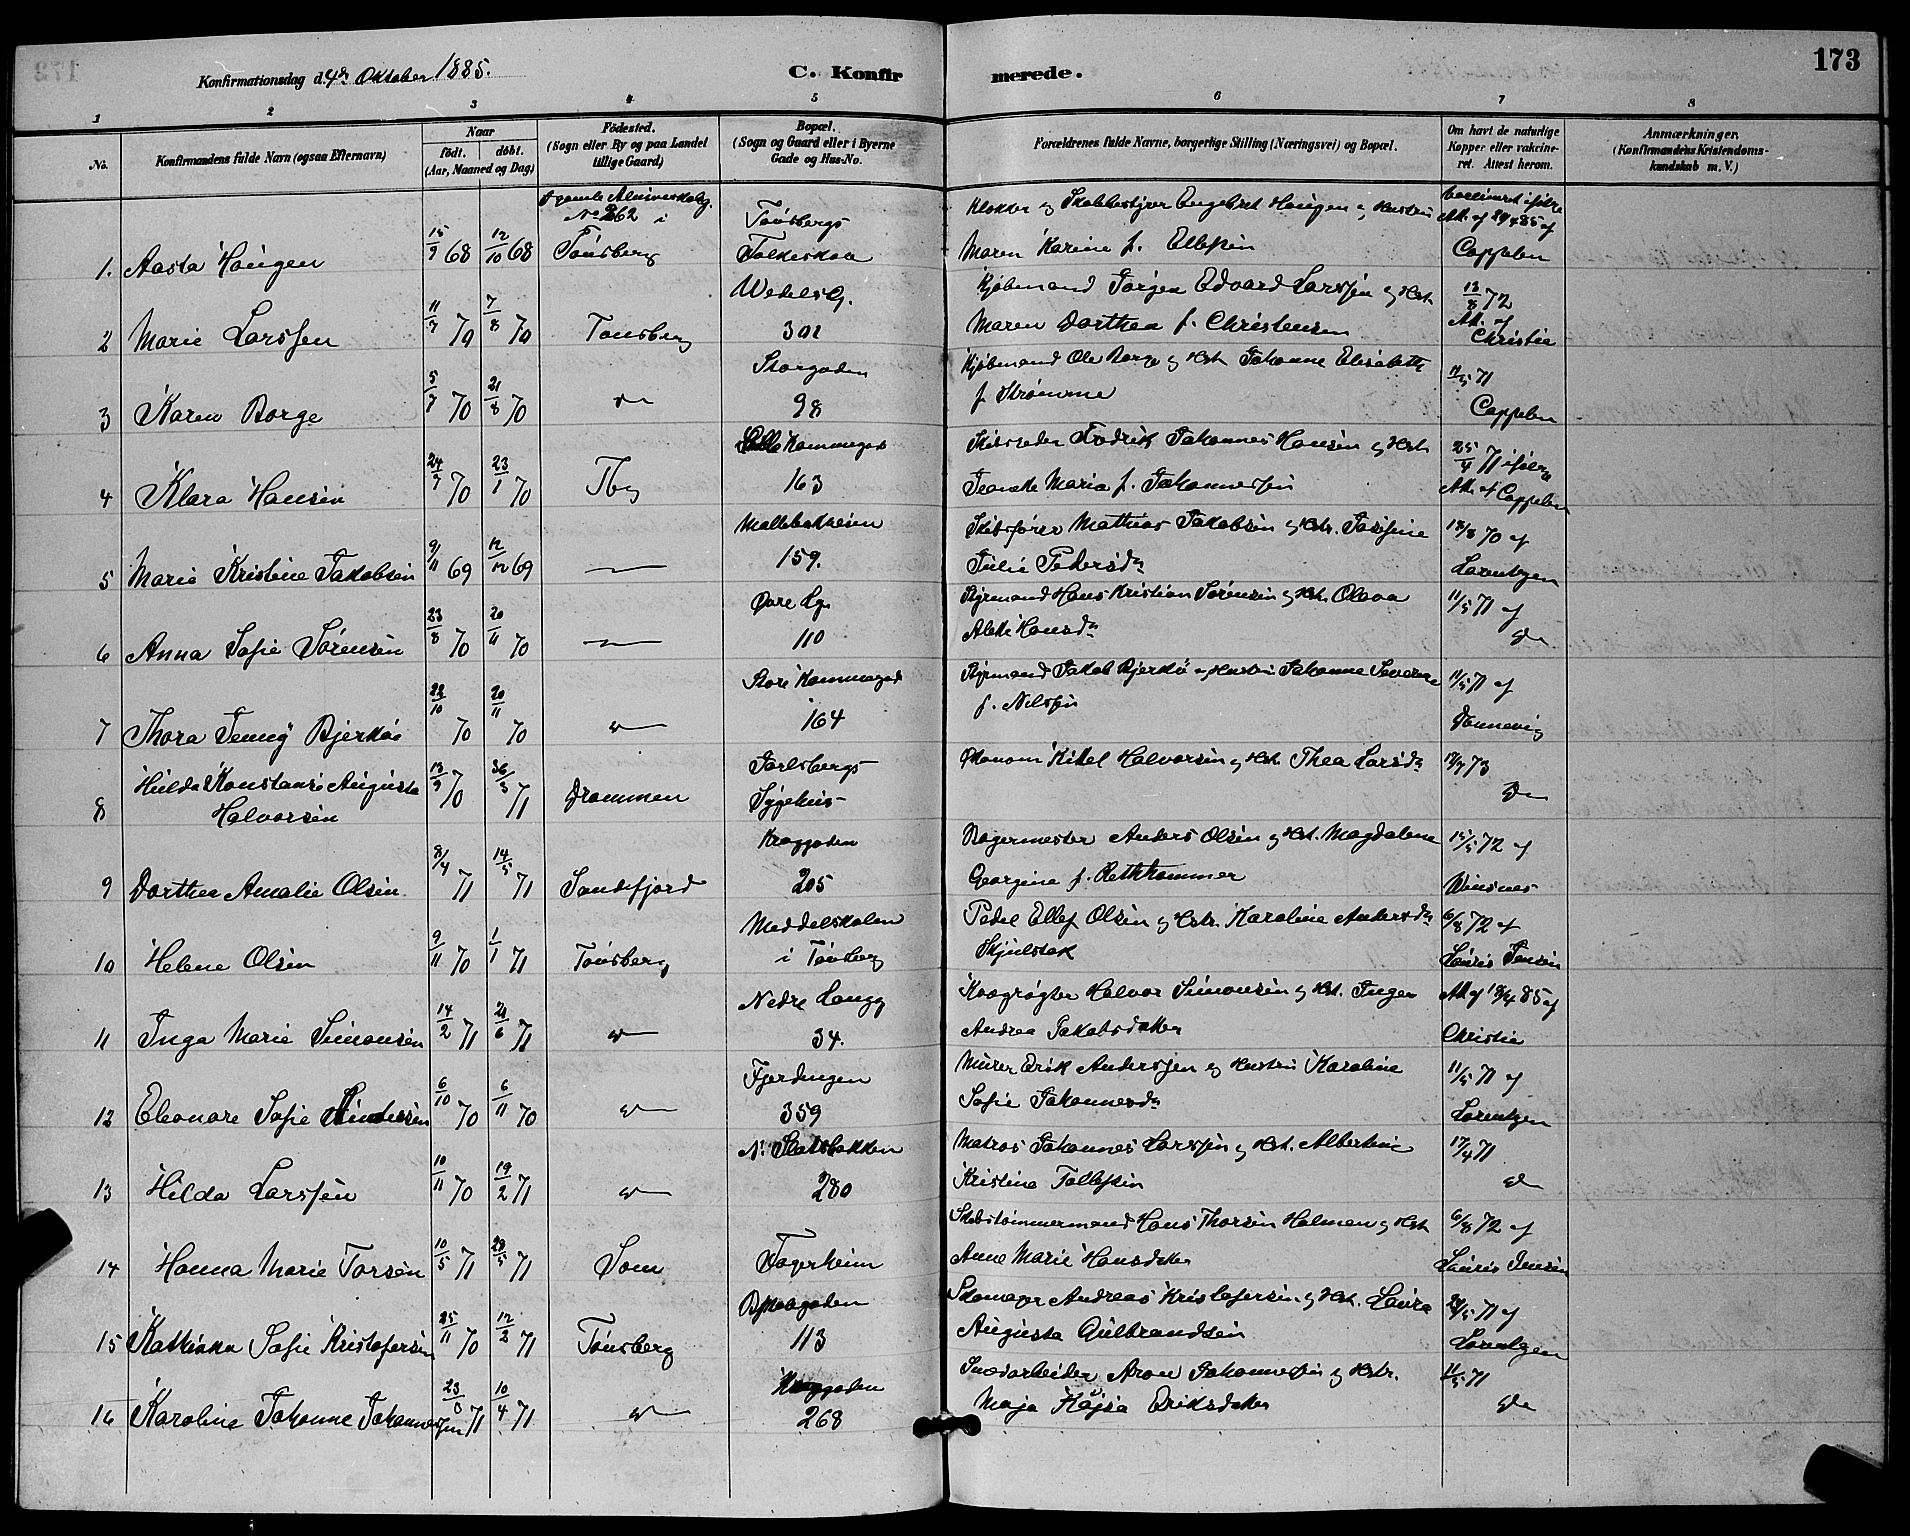 173
Konfirmationsdag d. 4de Oktober 1885.
C. Konfirmerede.
1 2 3 4 5 6 7 8
No.
Konfirmandens fulde Navn (ogsaa Efternavn)
Naar
født. døbt.
(Aar, Maaned og Dag)
Fødested.
(Sogn eller By og paa Landet
tillige Gaard)
Bopæl.
(Sogn og Gaard eller i Byerne
Gade og Hus-No.
Forældrenes fulde Navne, borgerlige Stilling (Næringsvei) og Bopæl.
Om havt de naturlige
Kopper eller vakcine-
ret. Attest herom.
Anmærkninger.
(Konfirmandens Kristendoms-
kundskab m. V.)
1. Aasta Haugen 15/9 68 12/10 68
No 262 i
Tønsberg
Tønsbergs
Folkeskole
Klokker og Engebret Haugen og Hustru
Maren Karine f. Ellefsen
Att. af 29/4 85 af
Cappelen
2 Marie Larssen 11/7 70 7/8 70 Tønsberg
Wedelsg.
301
Kjøbmand Jørgen Edvard Larssen og Hst.
Maren Dorthea f. Christensen
13/8 72
Att. af
Christie
3 Karen Borge 5/7 70 21/8 70
Storgaden
98
Kjøbmand Ole Borge og Hst. Johanne Elisabeth
f. Strømme
11/5 71
Cappelen
4 Klara Hansen 24/7 70 23/1 70 Tbg
163
Skibsreder Fredrik Johannes Hansen og Hst.
Maria f. Johannessen
25/4 71 ifølge
Att. af Cappelen
5 Marie Kristine Jakobsen 9/11 69 12/12 69
Møllebakken
159.
Skibsfører Mathias Jakobsen og Hstr. Josefine
Julie Pedersdr
18/8 70 af
Lorentzen
6 Anna Sofie Sørensen 23/8 70 20/11 70
Øvre Lg.
110
Styrmand Hans Kristian Sørensen og Hst. Olava
Hansdr
11/5 71 af
Do
7 Thora Jenny Bjerkø 22/10 70 20/11 70
Store Kammegad
164
Styrmand Jakob Bjerkø og Hustru Johanne Severine
f. Nilssen
11/5 71 af
Dannevig
8 Hulda Konstanse Augusta
Halvorsen
13/9 70 26/3 71 Drammen
Jarlsbergs
Sygehus
Økonom Kittel Halvorsen og Hst. Thea Larsdr
73
Do
9 Dorthea Amalie Olsen 8/4 71 14/5 71 Sandefjord
Kraggaden
205
Bagermester Anders Olsen og Hst. Magdalene
Georgine f. Rethhammer
15/5 72 af
Winsnes
10 Helene Olsen 9/11 70 1/1 71 Tønsberg
Middelskolen
i Tønsberg
Pedel Ellef Olsen og Hstr. Karoline Andersdr
Skjulstak
6/8 72 af
Lauris Jensen
11 Inga Marie Simonsen 14/2 71 21/6 71
Nedre Langg
34.
Halvor Simonsen og Hst. Inger
Andrea Jakobsdatter
Att af 18/4 85 af
Christie
12 Eleonore Sofie Andersen 6/10 70 6/11 70
Fjerdingen
359
Murer Erik Anderssen og Hustru Karoline
Sofie Johannesdr
11/5 71 af
Lorentzen
13 Hilda Larssen 10/11 70 19/2 71
N. Slotsbakken
280
Matros Johannes Larssen og Hst. Albertine
Kristine Tollefsen
17/4 71
Do
14 Hanna Marie Torsen 10/5 71 29/5 71 Sem
Fagerheim
Skibstømmermand Hans Thorsen Holmen og Hst
Anne Marie Hansdatter
6/8 72 af
Lauris Jensen
15 Kathinka Sofie Kristofersen 25/11 70 12/2 71 Tønsberg
113
Skomager Andreas Kristofersen og Hst. Laura
Augusta Gulbrandsen
24/5 71 af
Lorentzen
16 Karoline Johanne Johannessen 23/3 71 10/4 71
Kraggaden
268
Aron Johannessen og Hstr.
Maja Kajsa Eriksdatter
11/5 71
Do